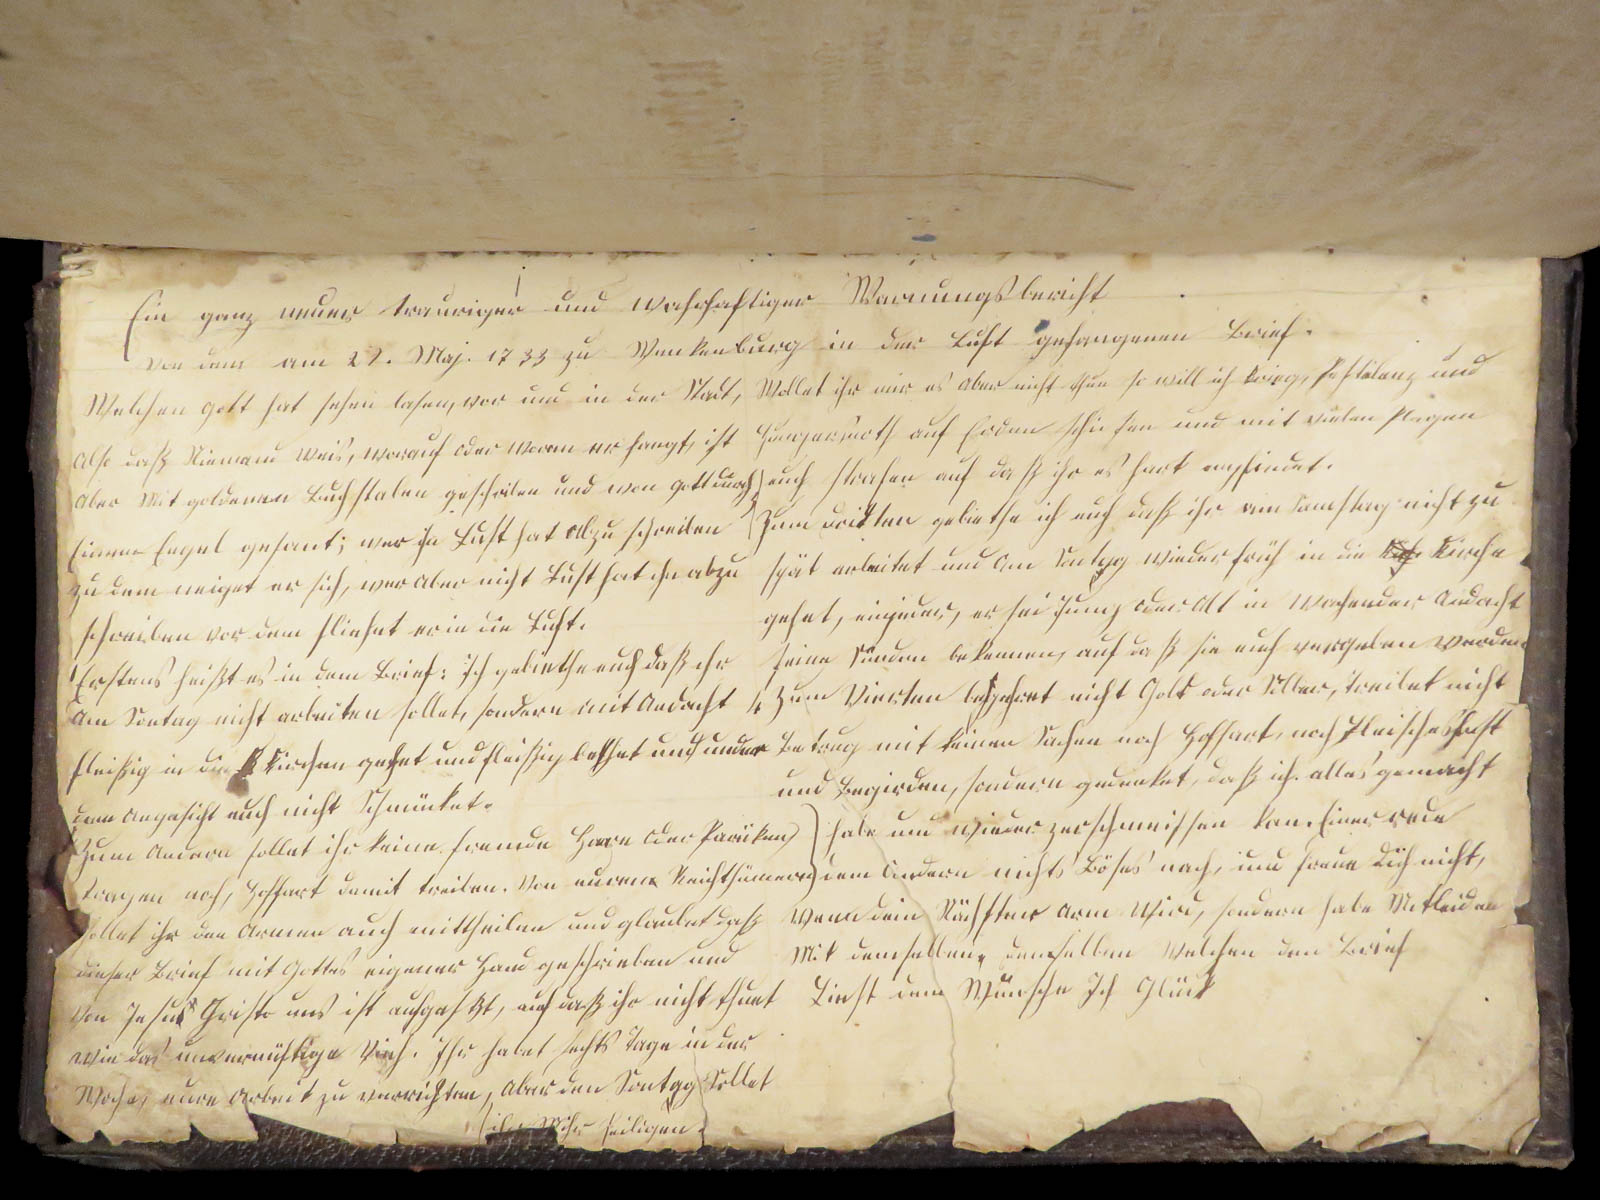 Ein ganz neuer trauriger und wahrhaftiger Warnungsbericht
von dem am 22. Maj. 1733 zu Wenkenburg in der Luft gefangenen Brief.
Welchen gott hat sehen lasen, vor und in der Stadt,
Also daß Niemand weis, worauf oder woran er hangt, ist
Aber Mit goldenen Buchstaben geschriben und von Gott durch
Einen Engel gesant; wer Lust hat Abzu schreiben
zu dem neiget er sich, wer Aber nicht Lust hat ihn abzu
schreiben vor dem fliehet er in die Luft.
Erstens heißt es in dem Brief: Ich geliethe euch daß ihr
Am Sontag nicht arbeiten sollet, sondern mit Andacht
fleißig in die Kirchen gehet und fleißig bethet und under
dem Angesicht euch nicht Schmücket.
Zum Andern sollet ihr keine fremde Hare oder Parüken
tragen noch, Hoffart damit treiben. Von euren Reichthümern
sollet ihr den Armen auch mittheilen und glaubet daß
dieser Brief mit Gottes eigener Hand geschrieben und
von Jesus Christo uns ist aufgesetzt, auf daß ihr nicht thuet
wie das unvernüftige Vieh. Ihr habet sechs Tage in der
Woche, eure Arbeit zu verrichten, Aber den Sontag Sollet
ihr Mihr heiligen.
Wollet ihr mir es Aber nicht thun so will ich krieg, Pestilenz und
Hungersnoth auf Erden schicken und mit vielen Plagen
euch strafen auf daß ihr es hart empfindet.
Zum dritten geliethe ich euch daß ihr am Samstag nicht zu
spät arbeitet und Am Sontag wieder früh in die Kirche
gehet, ein jeder, er sei Jung oder Alt in Wachender Andacht
seine Sünden bekennen, auf daß sie euch vergeben werden.
4 Zum Vierten begehret nicht Gold oder Silber, treibet nicht
Betrug mit keinen Sachen noch Hoffart, noch Fleischeslust
und Begirden, sondern gedenket, daß ich alles gemacht
habe und wieder zerschmeissen kan. Einer rede
dem Andern nichts Böses nach, und freue dich nicht,
wenn dein Nächster Arm Wird, sondern habe Mitleiden
Mit demselben, demselben welchen den Brief
Liest dem Wünsche Ich Glück